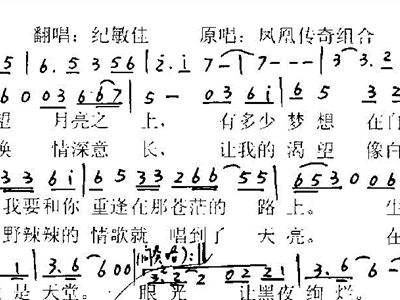 翻唱：纪敏佳 原唱：凤凰传奇组合
5 | 6. 5 3 5 6 | 2. i 7 - | 7 - - - | 3 3. 2
6 0 0 3 6 6 7 | 5 - 0 3 6 i | 6 5 3 2 0
望 月亮之 上， 有多少梦想 在自
唤 情深意 长， 让我的渴望 像白
3 3 6 i | 6 5 3 3 2 6 6 5 5 | 6 5 3 0 0 6
我要和你 重逢在那苍茫的 路上。 生
野辣辣的 情歌就 唱到了 天亮。 在
3. 6 - | 6 0 0 3. 2 2 2 0 2 2 1 | 3. 6 - | 6
是 天堂。 眼光 让黑夜 绚烂。